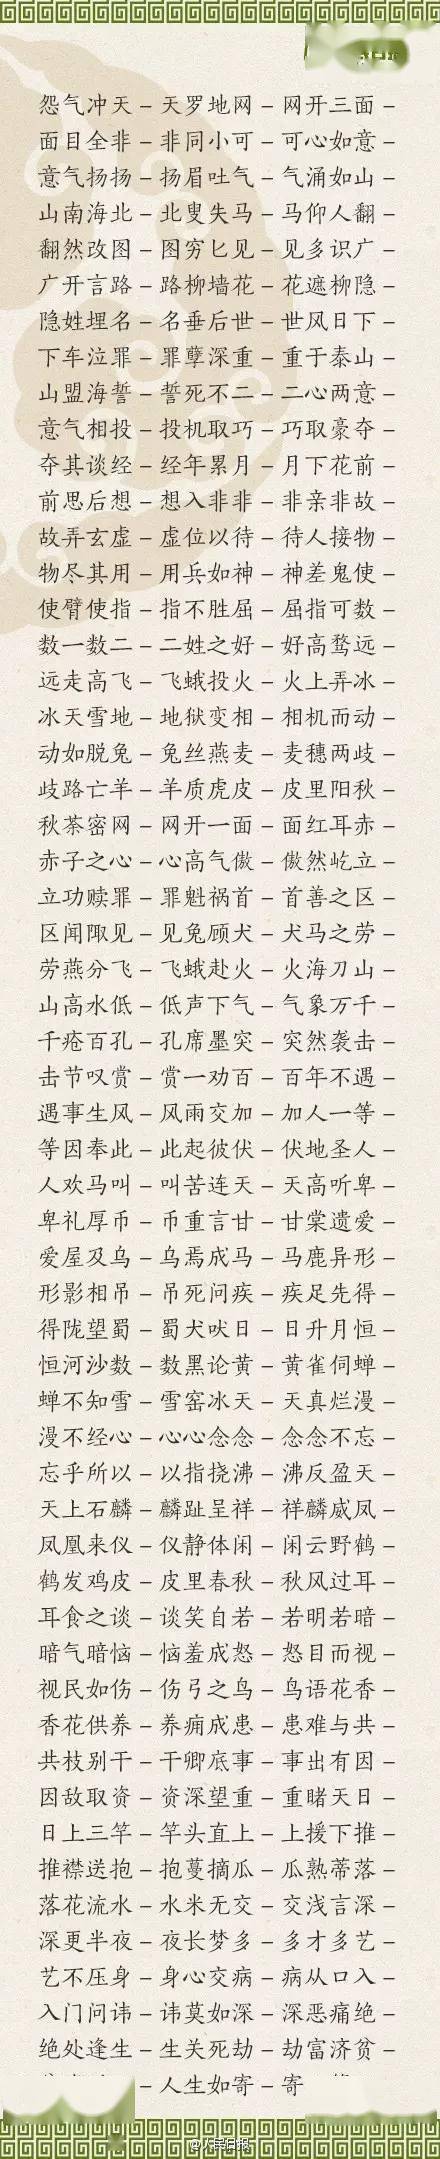 怨气冲天 – 天罗地网 – 网开三面 –
面目全非 – 非同小可 – 可心如意 –
意气扬扬 – 扬眉吐气 – 气涌如山 –
山南海北 – 北叟失马 – 马仰人翻 –
翻然改图 – 图穷匕见 – 见多识广 –
广开言路 – 路柳墙花 – 花遮柳隐 –
隐姓埋名 – 名垂后世 – 世风日下 –
下车泣罪 – 罪孽深重 – 重于泰山 –
山盟海誓 – 誓死不二 – 二心两意 –
意气相投 – 投机取巧 – 巧取豪夺 –
夺其谈经 – 经年累月 – 月下花前 –
前思后想 – 想入非非 – 非亲非故 –
故弄玄虚 – 虚位以待 – 待人接物 –
物尽其用 – 用兵如神 – 神差鬼使 –
使臂使指 – 指不胜屈 – 屈指可数 –
数一数二 – 二姓之好 – 好高骛远 –
远走高飞 – 飞蛾投火 – 火上弄冰 –
冰天雪地 – 地狱变相 – 相机而动 –
动如脱兔 – 兔丝燕麦 – 麦穗两歧 –
歧路亡羊 – 羊质虎皮 – 皮里阳秋 –
秋荼密网 – 网开一面 – 面红耳赤 –
赤子之心 – 心高气傲 – 傲然屹立 –
立功赎罪 – 罪魁祸首 – 首善之区 –
区闻陬见 – 见兔顾犬 – 犬马之劳 –
劳燕分飞 – 飞蛾赴火 – 火海刀山 –
山高水低 – 低声下气 – 气象万千 –
千疮百孔 – 孔席墨突 – 突然袭击 –
击节叹赏 – 赏一劝百 – 百年不遇 –
遇事生风 – 风雨交加 – 加人一等 –
等因奉此 – 此起彼伏 – 伏地圣人 –
人欢马叫 – 叫苦连天 – 天高听卑 –
卑礼厚币 – 币重言甘 – 甘棠遗爱 –
爱屋及乌 – 乌焉成马 – 马鹿异形 –
形影相吊 – 吊死问疾 – 疾足先得 –
得陇望蜀 – 蜀犬吠日 – 日升月恒 –
恒河沙数 – 数黑论黄 – 黄雀伺蝉 –
蝉不知雪 – 雪窑冰天 – 天真烂漫 –
漫不经心 – 心心念念 – 念念不忘 –
忘乎所以 – 以指挠沸 – 沸反盈天 –
天上石麟 – 麟趾呈祥 – 祥麟威凤 –
凤凰来仪 – 仪静体闲 – 闲云野鹤 –
鹤发鸡皮 – 皮里春秋 – 秋风过耳 –
耳食之谈 – 谈笑自若 – 若明若暗 –
暗气暗恼 – 恼羞成怒 – 怒目而视 –
视民如伤 – 伤弓之鸟 – 鸟语花香 –
香花供养 – 养痈成患 – 患难与共 –
共枝别干 – 干卿底事 – 事出有因 –
因敌取资 – 资深望重 – 重睹天日 –
日上三竿 – 竿头直上 – 上援下推 –
推襟送抱 – 抱蔓摘瓜 – 瓜熟蒂落 –
落花流水 – 水米无交 – 交浅言深 –
深更半夜 – 夜长梦多 – 多才多艺 –
艺不压身 – 身心交病 – 病从口入 –
入门问讳 – 讳莫如深 – 深恶痛绝 –
绝处逢生 – 生关死劫 – 劫富济贫 –
– 人生如寄 – 寄
@人民日报